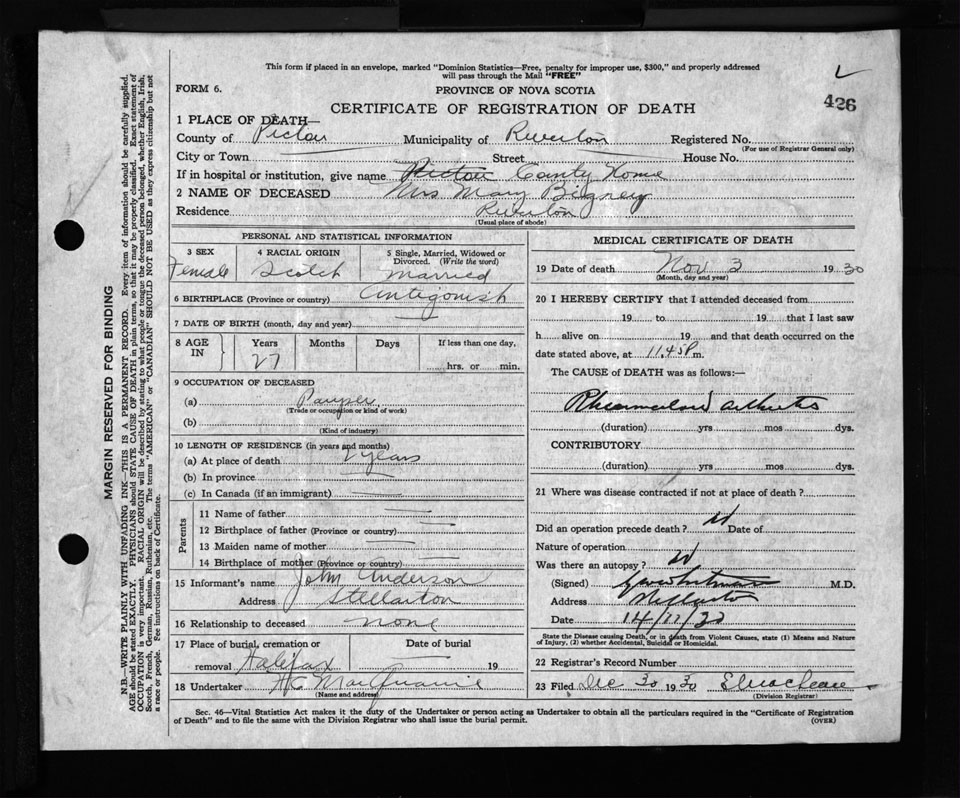 This form if placed in an envelope, marked "Dominion Statistics—Free, penalty for improper use, $300," and properly addressed
will pass through the Mail "FREE"
FORM 6.
PROVINCE OF NOVA SCOTIA
CERTIFICATE OF REGISTRATION OF DEATH
426
1 PLACE OF DEATH—
County of Pictou Municipality of Riverton Registered No.
(For use of Registrar General only)
City or Town Street House No.
If in hospital or institution, give name Pictou County Home
2 NAME OF DECEASED Mrs Mary Bigney
Residence Riverton
(Usual place of abode)
PERSONAL AND STATISTICAL INFORMATION
3 SEX 4 RACIAL ORIGIN 5 Single, Married, Widowed or Divorced. (Write the word)
Female Scotch Married
6 BIRTHPLACE (Province or country) Antigonish
7 DATE OF BIRTH (month, day and year)
8 AGE IN Years Months Days If less than one day,
27 hrs. or min.
9 OCCUPATION OF DECEASED
(a) Pauper
(Trade or occupation or kind of work)
(b)
(Kind of industry)
10 LENGTH OF RESIDENCE (in years and months)
(a) At place of death years
(b) In province
(c) In Canada (if an immigrant)
Parents
11 Name of father
12 Birthplace of father (Province or country)
13 Maiden name of mother
14 Birthplace of mother (Province or country)
15 Informant's name John Anderson
Address Stellarton
16 Relationship to deceased none
17 Place of burial, cremation or Date of burial
removal Halifax 19
18 Undertaker
(Name and address)
MEDICAL CERTIFICATE OF DEATH
19 Date of death Nov 3 1930
(Month, day and year)
20 I HEREBY CERTIFY that I attended deceased from
19 to 19 that I last saw
h alive on 19 and that death occurred on the
date stated above, at 11.45P m.
The CAUSE of DEATH was as follows:—
Rheumatoid arthritis
(duration) yrs mos dys.
CONTRIBUTORY
(duration) yrs mos dys.
21 Where was disease contracted if not at place of death?
Did an operation precede death? Date of
Nature of operation
Was there an autopsy?
(Signed) M.D.
Address Stellarton
Date 14/11/30
State the Disease causing Death, or in death from Violent Causes, state (1) Means and Nature
of Injury, (2) whether Accidental, Suicidal or Homicidal.
22 Registrar's Record Number
23 Filed Dec 30 1930
(Division Registrar)
Sec. 46—Vital Statistics Act makes it the duty of the Undertaker or person acting as Undertaker to obtain all the particulars required in the "Certificate of Registration
of Death" and to file the same with the Division Registrar who shall issue the burial permit. (OVER)
MARGIN RESERVED FOR BINDING
N.B.—WRITE PLAINLY WITH UNFADING INK—THIS IS A PERMANENT RECORD. Every item of information should be carefully supplied.
AGE should be stated EXACTLY. PHYSICIANS should STATE CAUSE OF DEATH in plain terms, so that it may be properly classified. Exact statement of
OCCUPATION is very important. RACIAL ORIGIN will be described by stating to what people or tongue the deceased person belonged, whether English, Irish,
Scotch, French, German, Russian, Ruthenian, etc. The terms "AMERICAN" or "CANADIAN" SHOULD NOT BE USED as they express citizenship but not
a race or people. See instructions on back of Certificate.